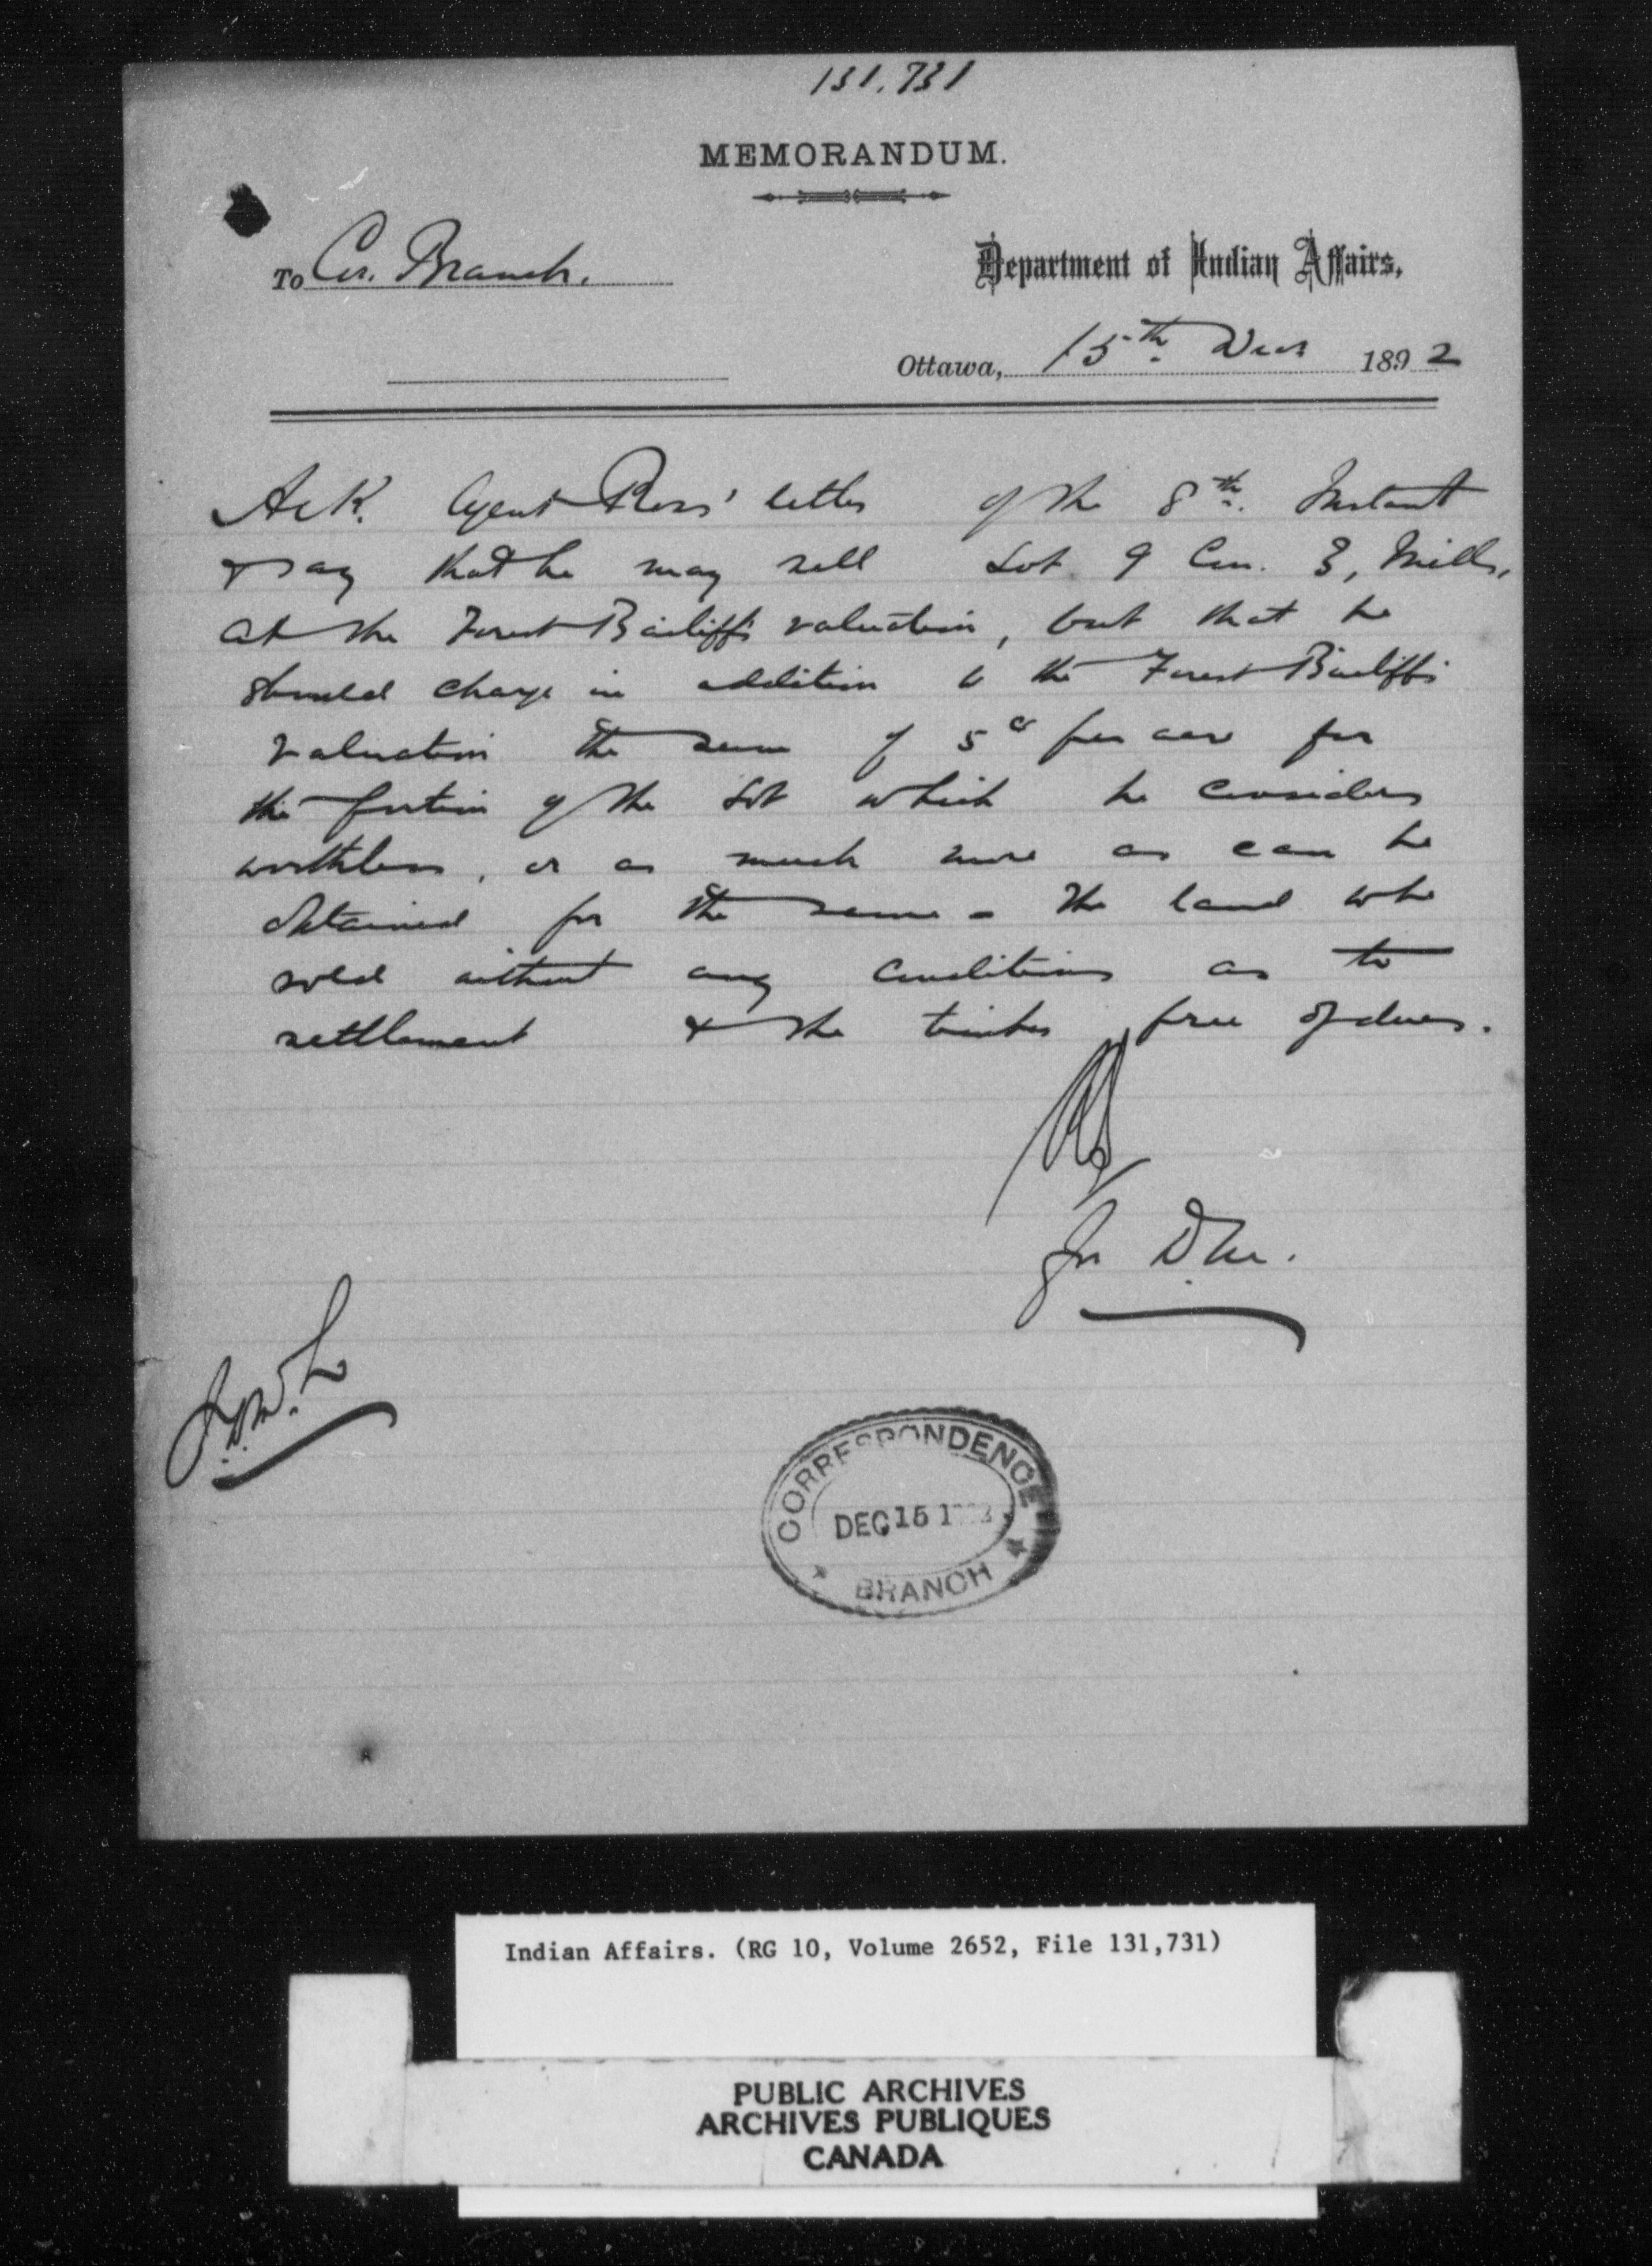 131,731
MEMORANDUM.
To Cor. Branch.
Department of Indian Affairs,
Ottawa, 15th Decr 1892
Ack. Agent Ross' letter of the 8th. Instant
& say that he may sell Lot 9 Con. 3, Mills,
at the Forest Bailiff's valuation, but that he
should charge in addition to the Forest Bailiff's
valuation the sum of 5c per acre for
the portion of the Lot which he considers
worthless, or as much more as can be
obtained for the same - The land to be
sold without any conditions as to
settlement & the timber free of dues.
for D.M.
CORRESPONDENCE
DEC 15 1
BRANCH
Indian Affairs. (RG 10, Volume 2652, File 131,731)
PUBLIC ARCHIVES
ARCHIVES PUBLIQUES
CANADA